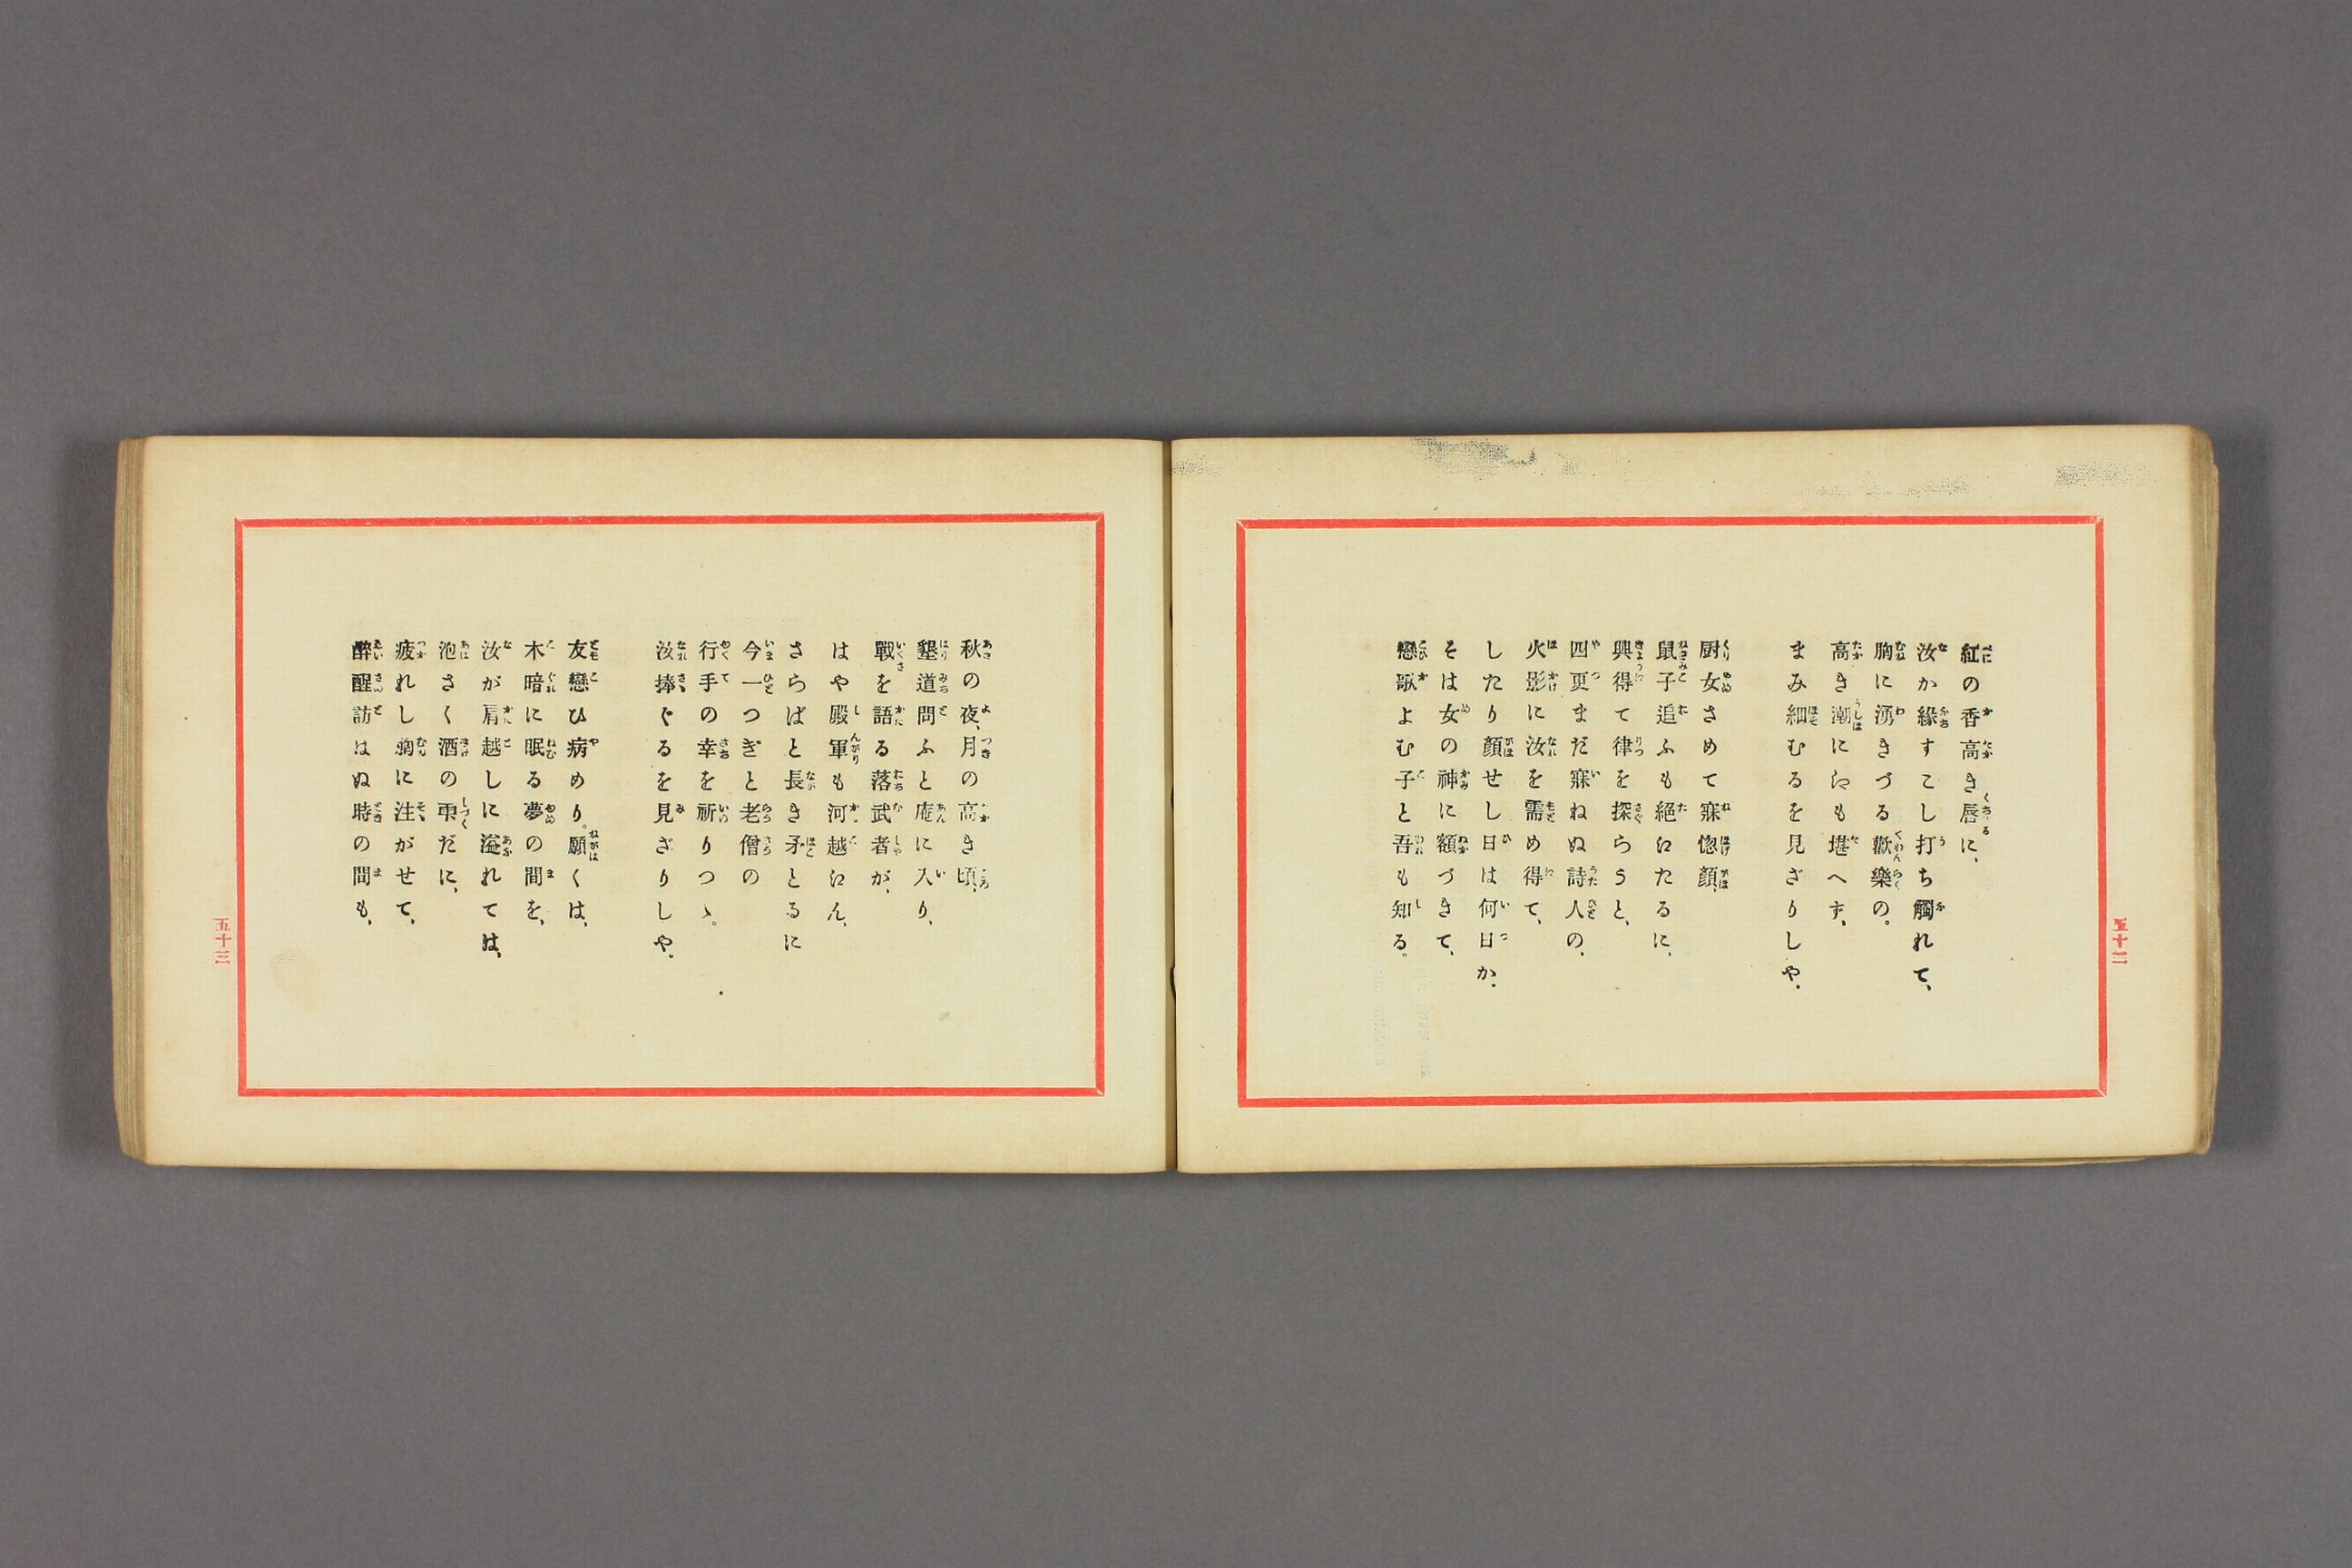 紅の香高き唇に、
汝か緣すこし打ち觸れて、
胸に湧きづる歡樂の。
高き潮にえも堪へす、
まみ細むるを見ざりしや。
厨女さめて寐惚顏、
鼠子追ふも絕えたるに、
興得て律を探らうと、
四更まだ寐ねぬ詩人の、
火影に汝を需め得て、
したり顏せし日は何日か。
そは女の神に額づきて、
戀歌よむ子と吾も知る。
五十二
秋の夜、月の高き頃、
墾道問ふと庵に入り、
戰を語る落武者が、
はや殿軍も河越えん、
さらばと長き矛とるに
今一つぎと老僧の
行手の幸を祈りつゝ。
汝捧ぐるを見ざりしや。
友戀ひ病めり。願くは、
木暗に眠る夢の間を、
汝が肩越しに溢れては、
泡さく酒の雫だに、
疲れし胸に注がせて、
醉醒訪はぬ時の間も、
五十三